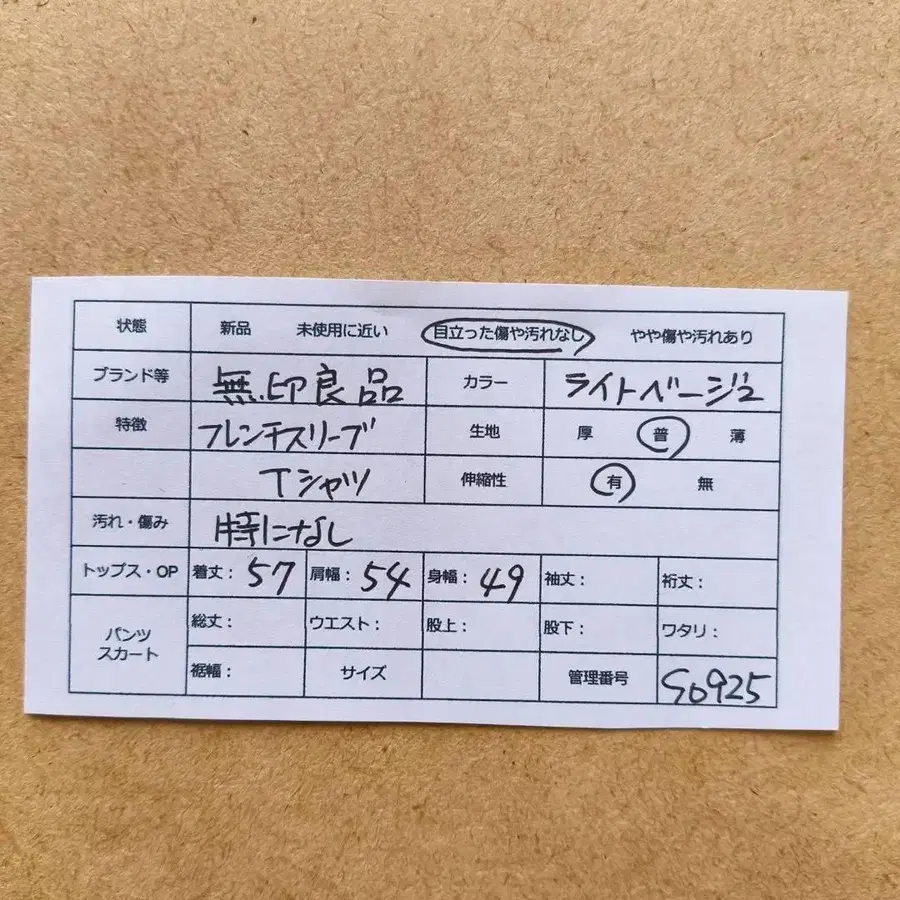 状態 新品 未使用に近い 目立った傷や汚れなし やや傷や汚れあり
ブランド等 無印良品 カラー ライトベージュ
特徴 フレンチスリーブ 生地 厚 普 薄
Tシャツ 伸縮性 有 無
汚れ・傷み 特になし
トップス・OP 着丈: 57 肩幅: 54 身幅: 49 袖丈: 裄丈:
パンツ スカート 総丈: ウエスト: 股上: 股下: ワタリ:
裾幅: サイズ 管理番号 S0925